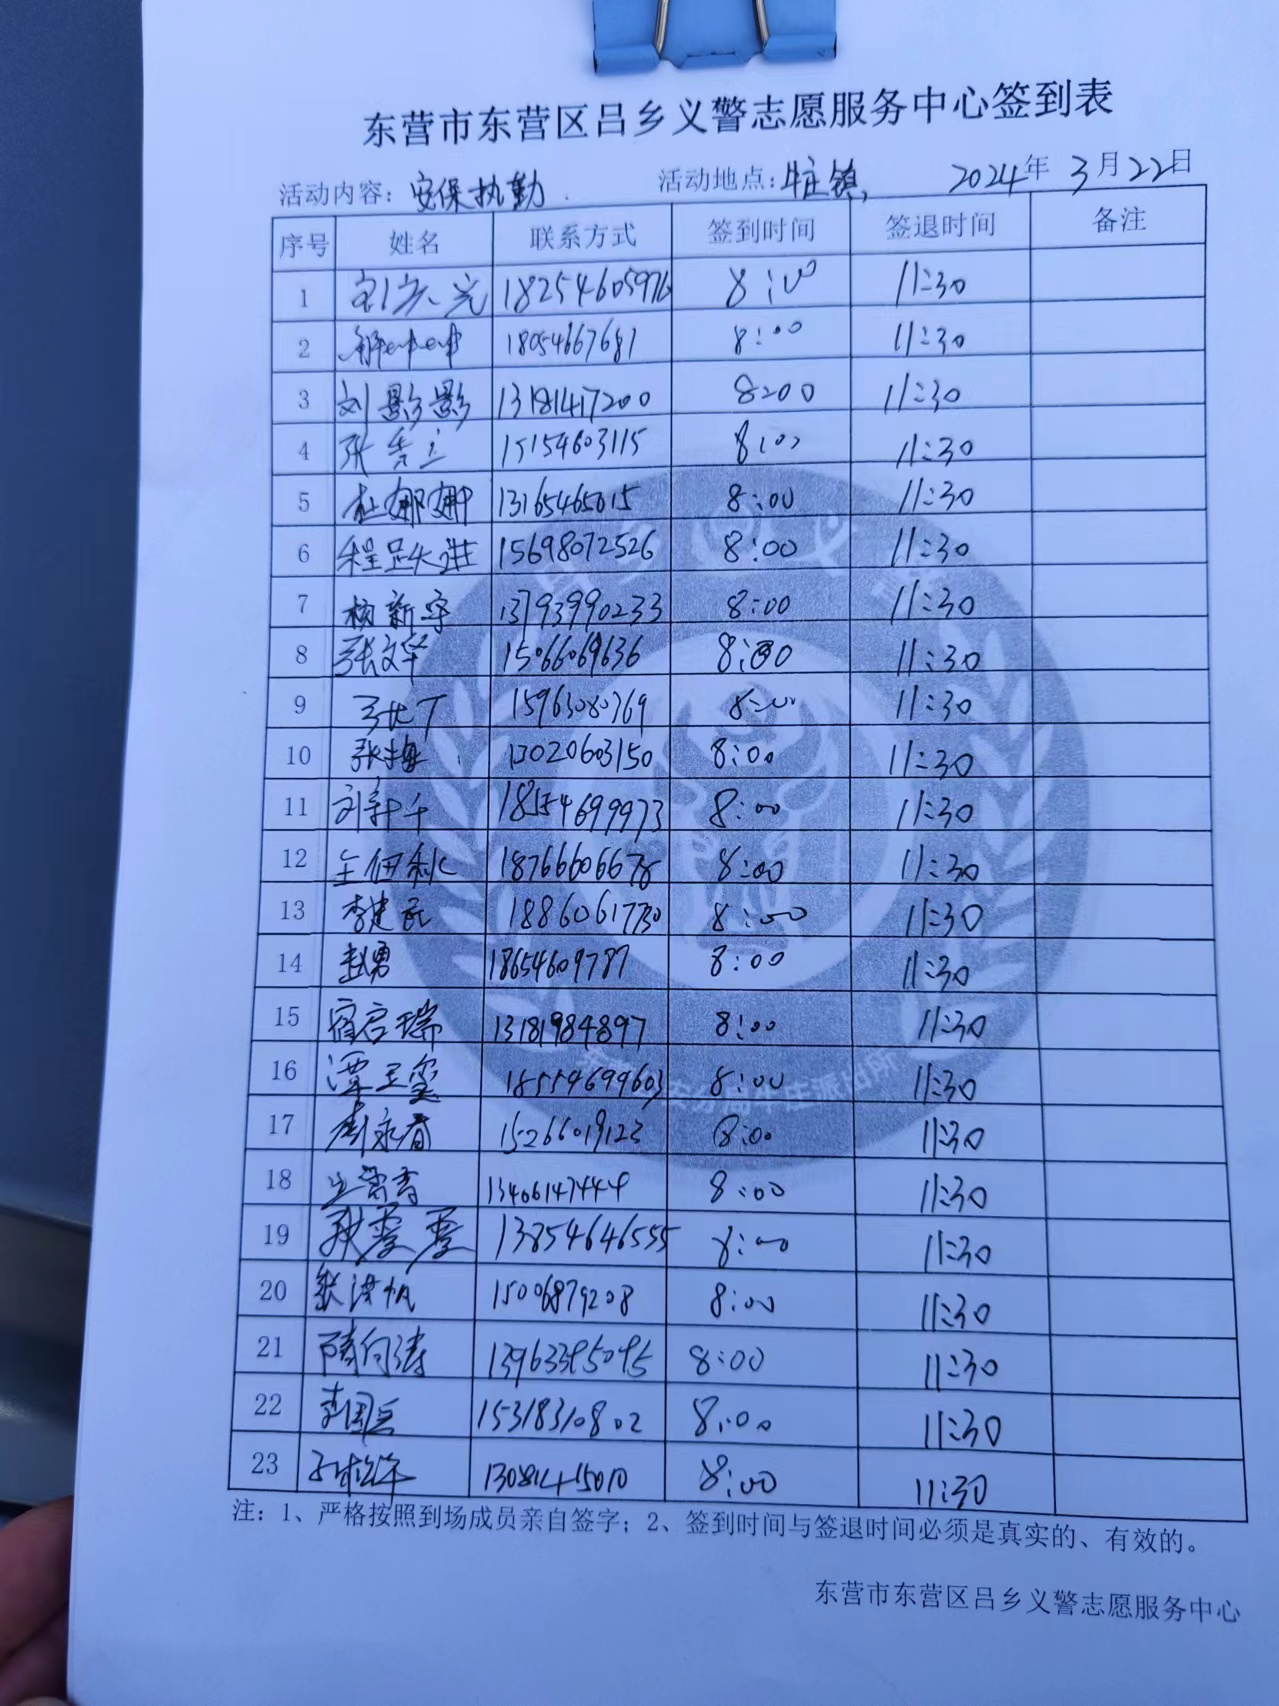 东营市东营区吕乡义警志愿服务中心签到表
活动内容：安保执勤 活动地点：牛庄镇 2024年3月22日
序号 姓名 联系方式 签到时间 签退时间 备注
1 18254605976 8:00 11:30
2 18054667681 8:00 11:30
3 刘影影 13181417200 8:00 11:30
4 张秀兰 15154603115 8:00 11:30
5 杜娜娜 13165465015 8:00 11:30
6 程跃进 15698072526 8:00 11:30
7 杨新宇 13793990233 8:00 11:30
8 张文华 15066069636 8:00 11:30
9 15963080769 8:00 11:30
10 张梅 13020603150 8:00 11:30
11 18554699973 8:00 11:30
12 18766606678 8:00 11:30
13 李建民 18860617730 8:00 11:30
14 赵勇 18654609787 8:00 11:30
15 宿启瑞 13181984897 8:00 11:30
16 谭玉玺 18554699603 8:00 11:30
17 李永春 15266019123 8:00 11:30
18 13406147444 8:00 11:30
19 13854646555 8:00 11:30
20 张洪帆 15006879208 8:00 11:30
21 隋向涛 13963395095 8:00 11:30
22 李国兵 15318310802 8:00 11:30
23 8:00 11:30
注：1、严格按照到场成员亲自签字；2、签到时间与签退时间必须是真实的、有效的。
东营市东营区吕乡义警志愿服务中心